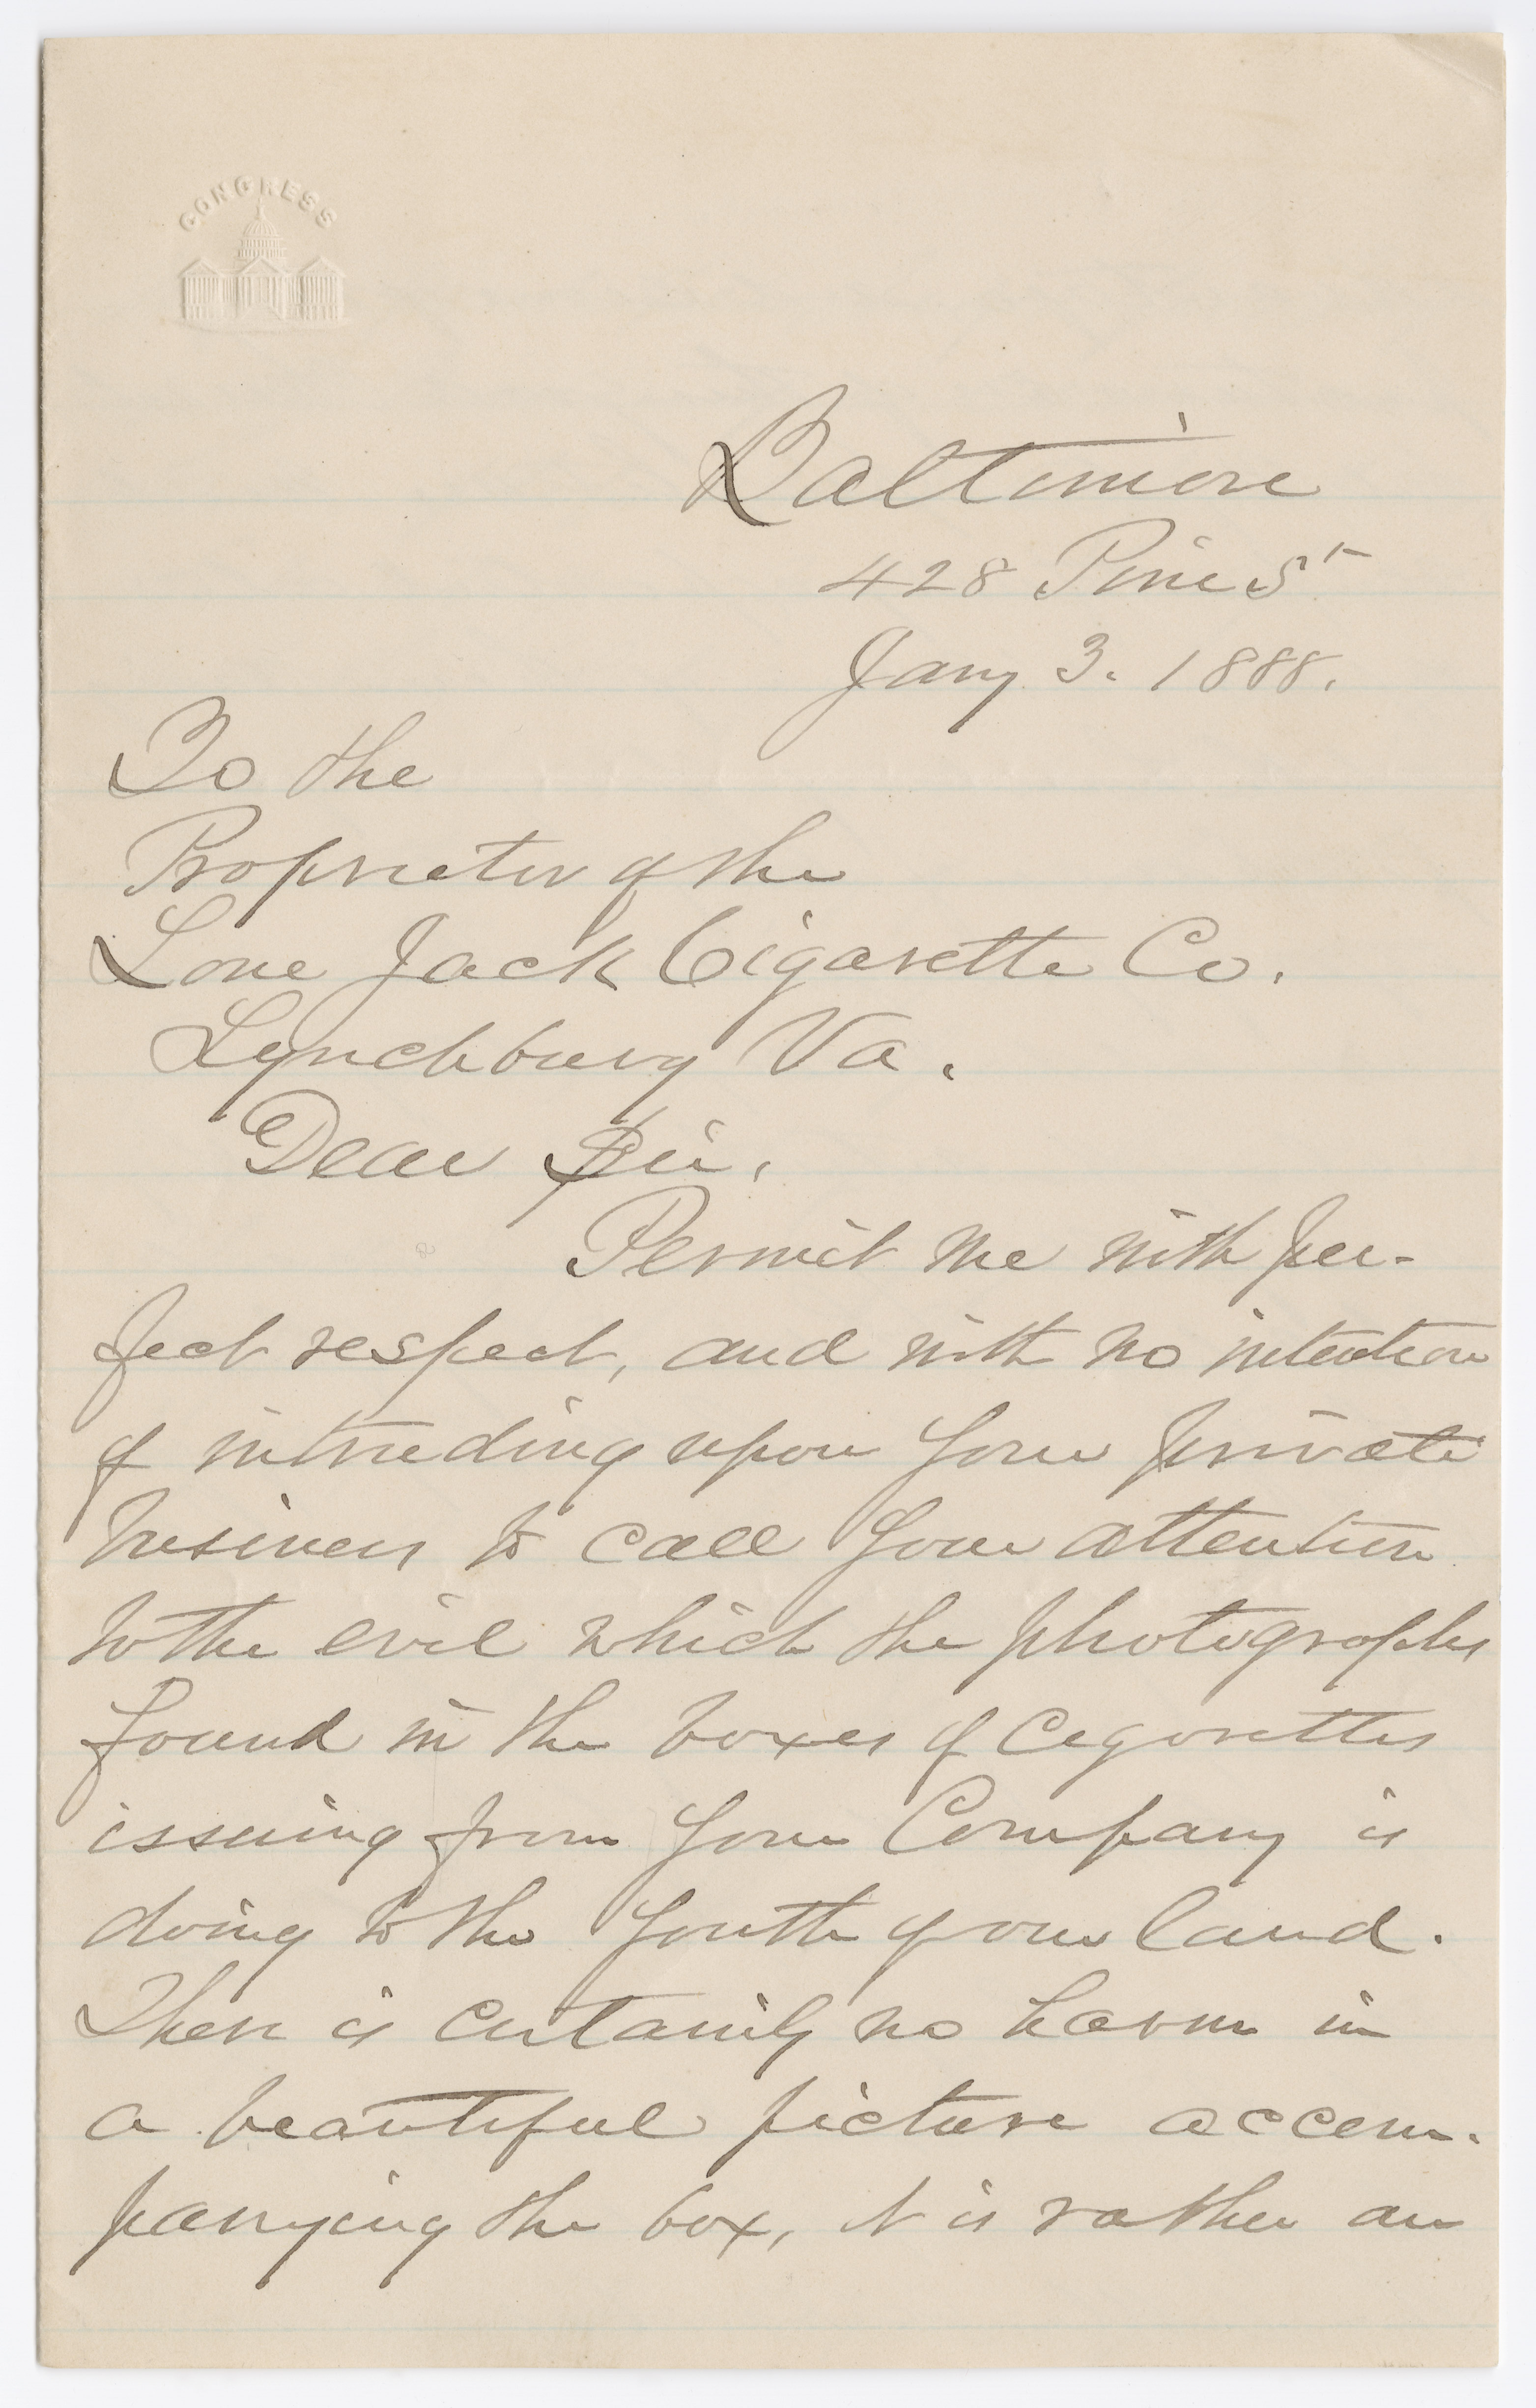 CONGRESS
Baltimore
428 Pine St
Jany 3. 1888.
To the
Proprietor of the
Lone Jack Cigarette Co.
Lynchburg Va.
Dear Sir.
Permit me with per-
fect respect, and with no intention
of intruding upon your private
business to call your attention
to the evil which the photographs
found in the boxes of Cegarettes
issuing from your Company is
doing to the youth of our land.
There is certainly no harm in
a beautiful picture accom-
panying the box, it is rather an